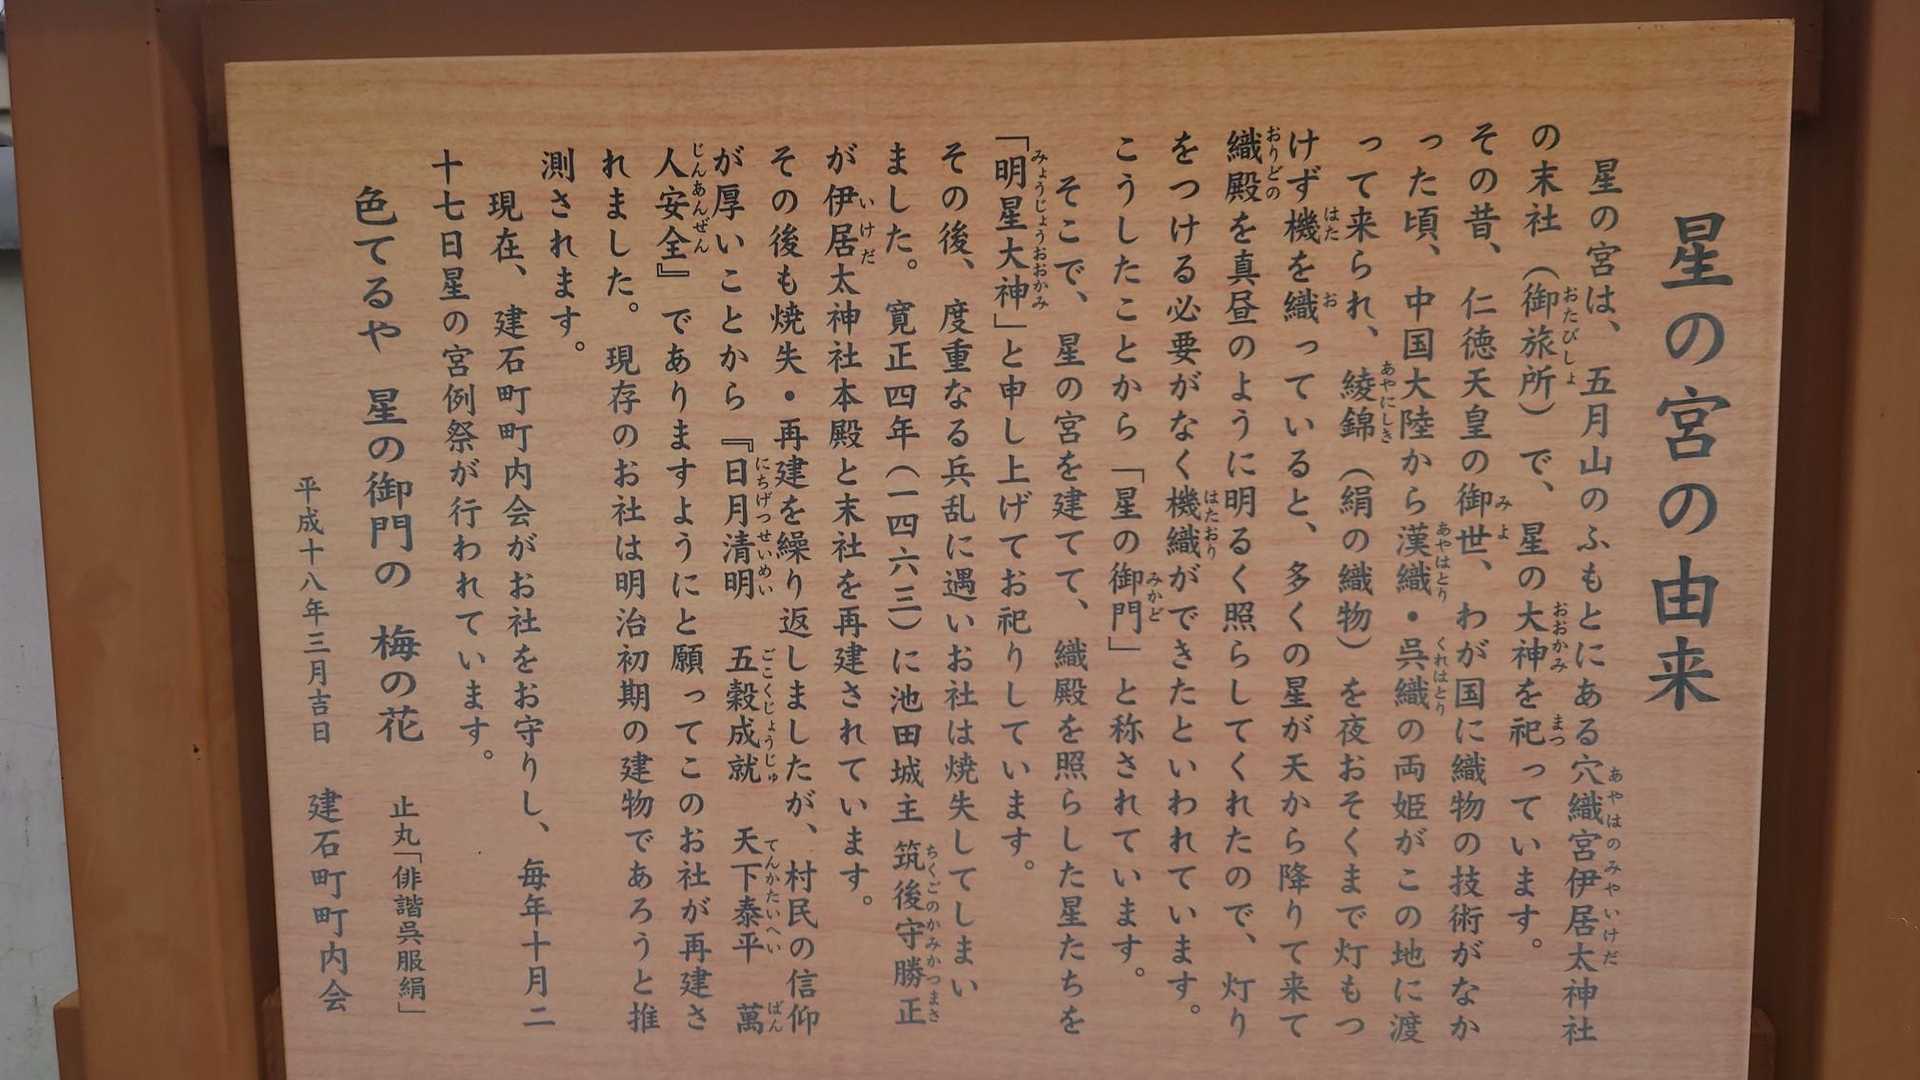 星の宮の由来
星の宮は、五月山のふもとにある穴織宮伊居太神社
の末社（御旅所）で、星の大神を祀っています。
その昔、仁徳天皇の御世、わが国に織物の技術がなか
った頃、中国大陸から漢織・呉織の両姫がこの地に渡
って来られ、綾錦（絹の織物）を夜おそくまで灯もつ
けず機を織っていると、多くの星が天から降りて来て
織殿を真昼のように明るく照らしてくれたので、灯り
をつける必要がなく機織ができたといわれています。
こうしたことから「星の御門」と称されています。
そこで、星の宮を建てて、織殿を照らした星たちを
「明星大神」と申し上げてお祀りしています。
その後、度重なる兵乱に遇いお社は焼失してしまい
ました。寛正四年（一四六三）に池田城主筑後守勝正
が伊居太神社本殿と末社を再建されています。
その後も焼失・再建を繰り返しましたが、村民の信仰
が厚いことから『日月清明　五穀成就　天下泰平　萬
人安全』でありますようにと願ってこのお社が再建さ
れました。現存のお社は明治初期の建物であろうと推
測されます。
現在、建石町町内会がお社をお守りし、毎年十月二
十七日星の宮例祭が行われています。
色てるや　星の御門の　梅の花　止丸「俳諧呉服絹」
平成十八年三月吉日　建石町町内会